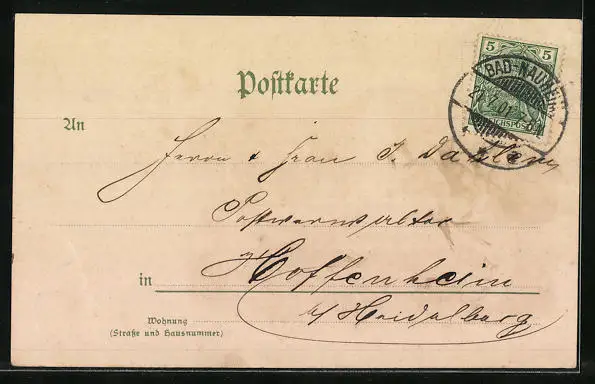 5 5
BAD-NAUHEIM
REICHSPOST
Postkarte
An
Herrn & Frau J.
Postverwalter
in Hoffenheim
b/ Heidelberg
Wohnung
(Straße und Hausnummer)